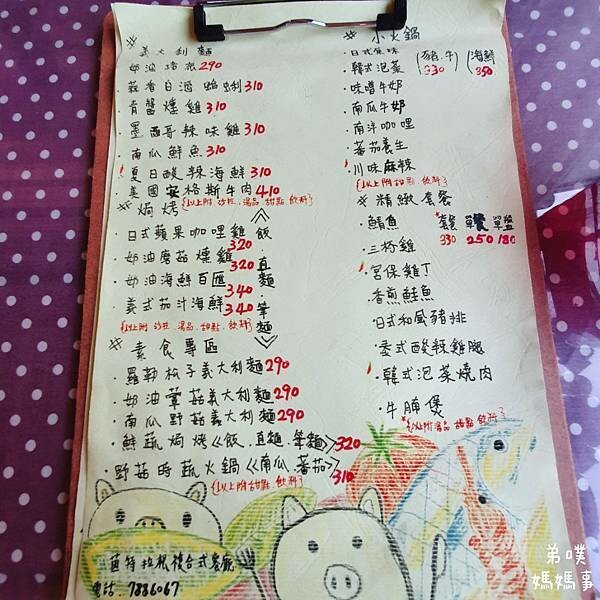 ※ 義大利麵
奶油培根290
蒜香白酒蛤蜊310
·青醬燻雞310
·墨西哥辣味雞310
·南瓜鮮魚310
·夏日酸辣海鮮310
·美國安格斯牛肉410
(以上附沙拉.湯品.甜點.飲料)
※ 焗烤
·日式蘋果咖哩雞320
·奶油蘑菇燻雞320
·奶油海鮮百匯340
·義式茄汁海鮮340
《飯.直麵.筆麵》
(以上附沙拉.湯品.甜點.飲料)
※ 素食專區
·羅勒松子義大利麵290
·奶油蕈菇義大利麵290
·南瓜野菇義大利麵290
·鮮蔬焗烤《飯.直麵.筆麵》320
·野菇時蔬火鍋《南瓜.蕃茄》310
(以上附甜點.飲料)
※ 小火鍋
(豬.牛) (海鮮)
330 350
·日式原味
·韓式泡菜
·味噌牛奶
·南瓜牛奶
·南洋咖哩
·蕃茄養生
·川味麻辣
(以上附甜點.飲料)
※ 精緻套餐
套餐 單餐 單盤
330 250 180
·鯖魚
·三杯雞
·宮保雞丁
·香煎鮭魚
·日式和風豬排
·泰式酸辣雞腿
·韓式泡菜燒肉
·牛腩煲
(以上附湯品.甜點.飲料)
芭特拉根複合式餐廳
電話:7886067
弟噗
媽媽事